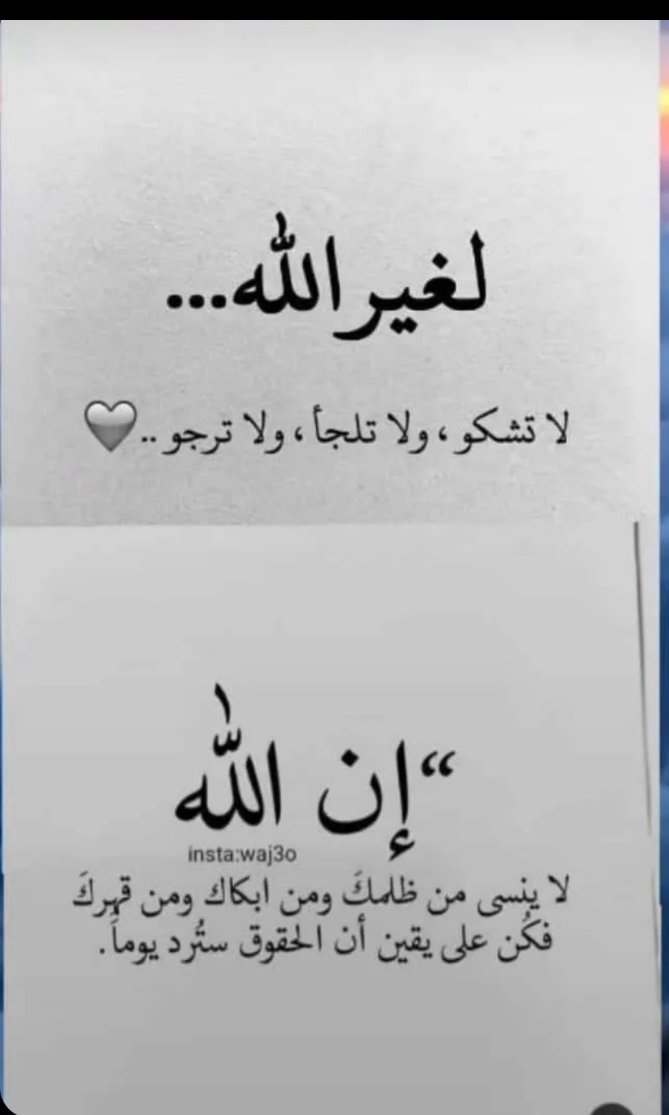 لغير الله...
لا تشكو ، ولا تلجأ ، ولا ترجو ..🤍
“إن الله
insta:waj3o
لا ينسى من ظلمكَ ومن ابكاك ومن قهركَ
فكُن على يقين أن الحقوق ستُرد يوماً.